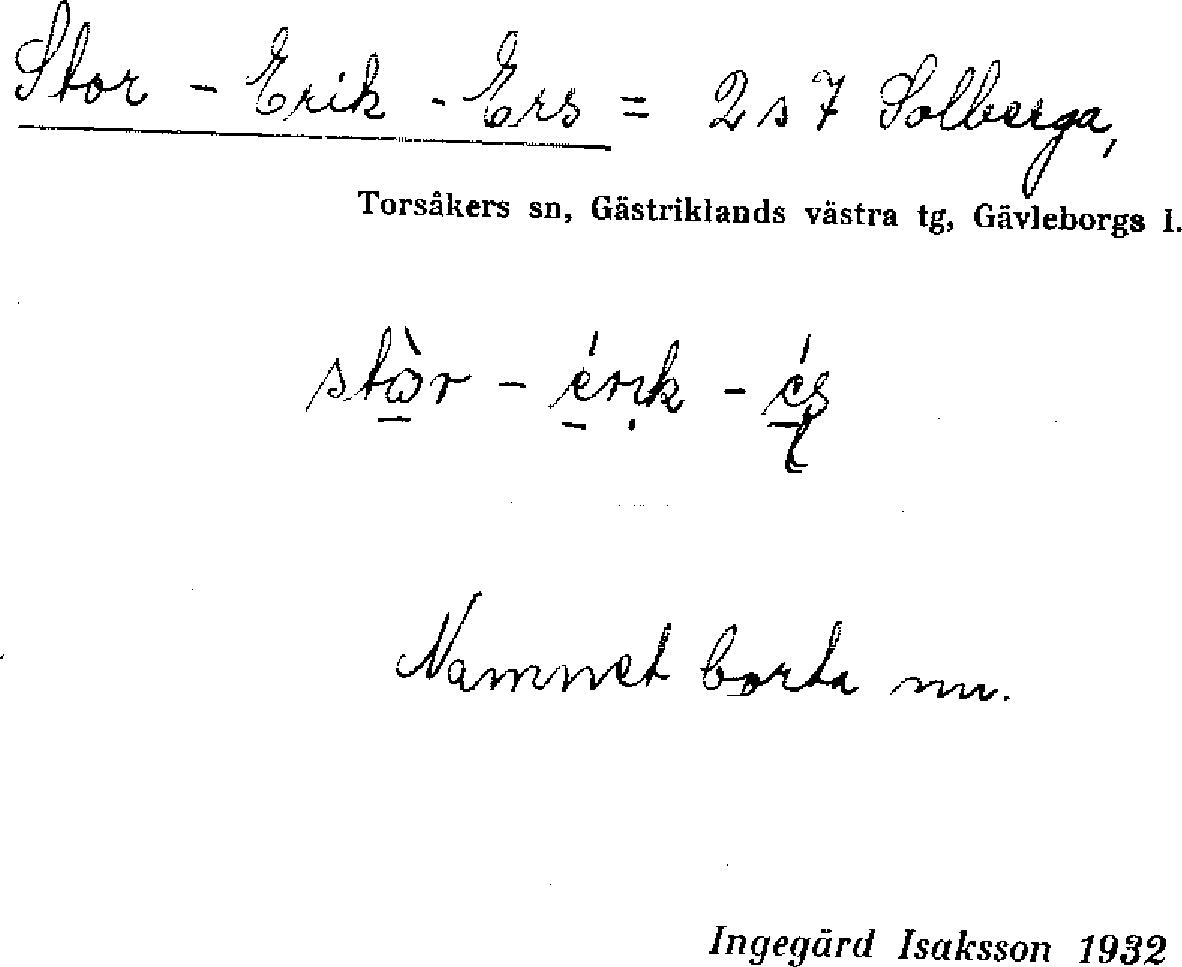 Stor - Erik - Ers = 2 s 7 Solberga,
Torsåkers sn, Gästriklands västra tg, Gävleborgs l.
stòr - érik - és
Namnet borta nu.
Ingegärd Isaksson 1932